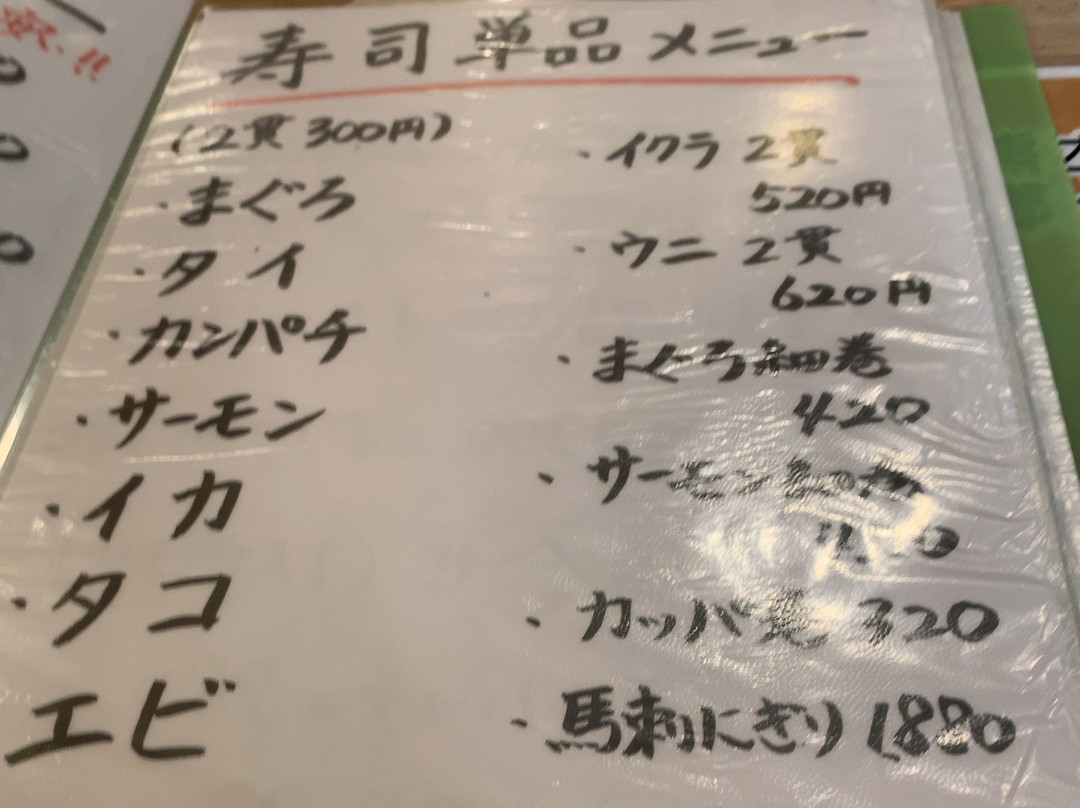 寿司単品メニュー
(2貫300円)
・まぐろ
・タイ
・カンパチ
・サーモン
・イカ
・タコ
エビ
・イクラ 2貫
520円
・ウニ 2貫
620円
・まぐろ細巻
420
・サーモン
・カッパ巻 320
・馬刺にぎり 1,880